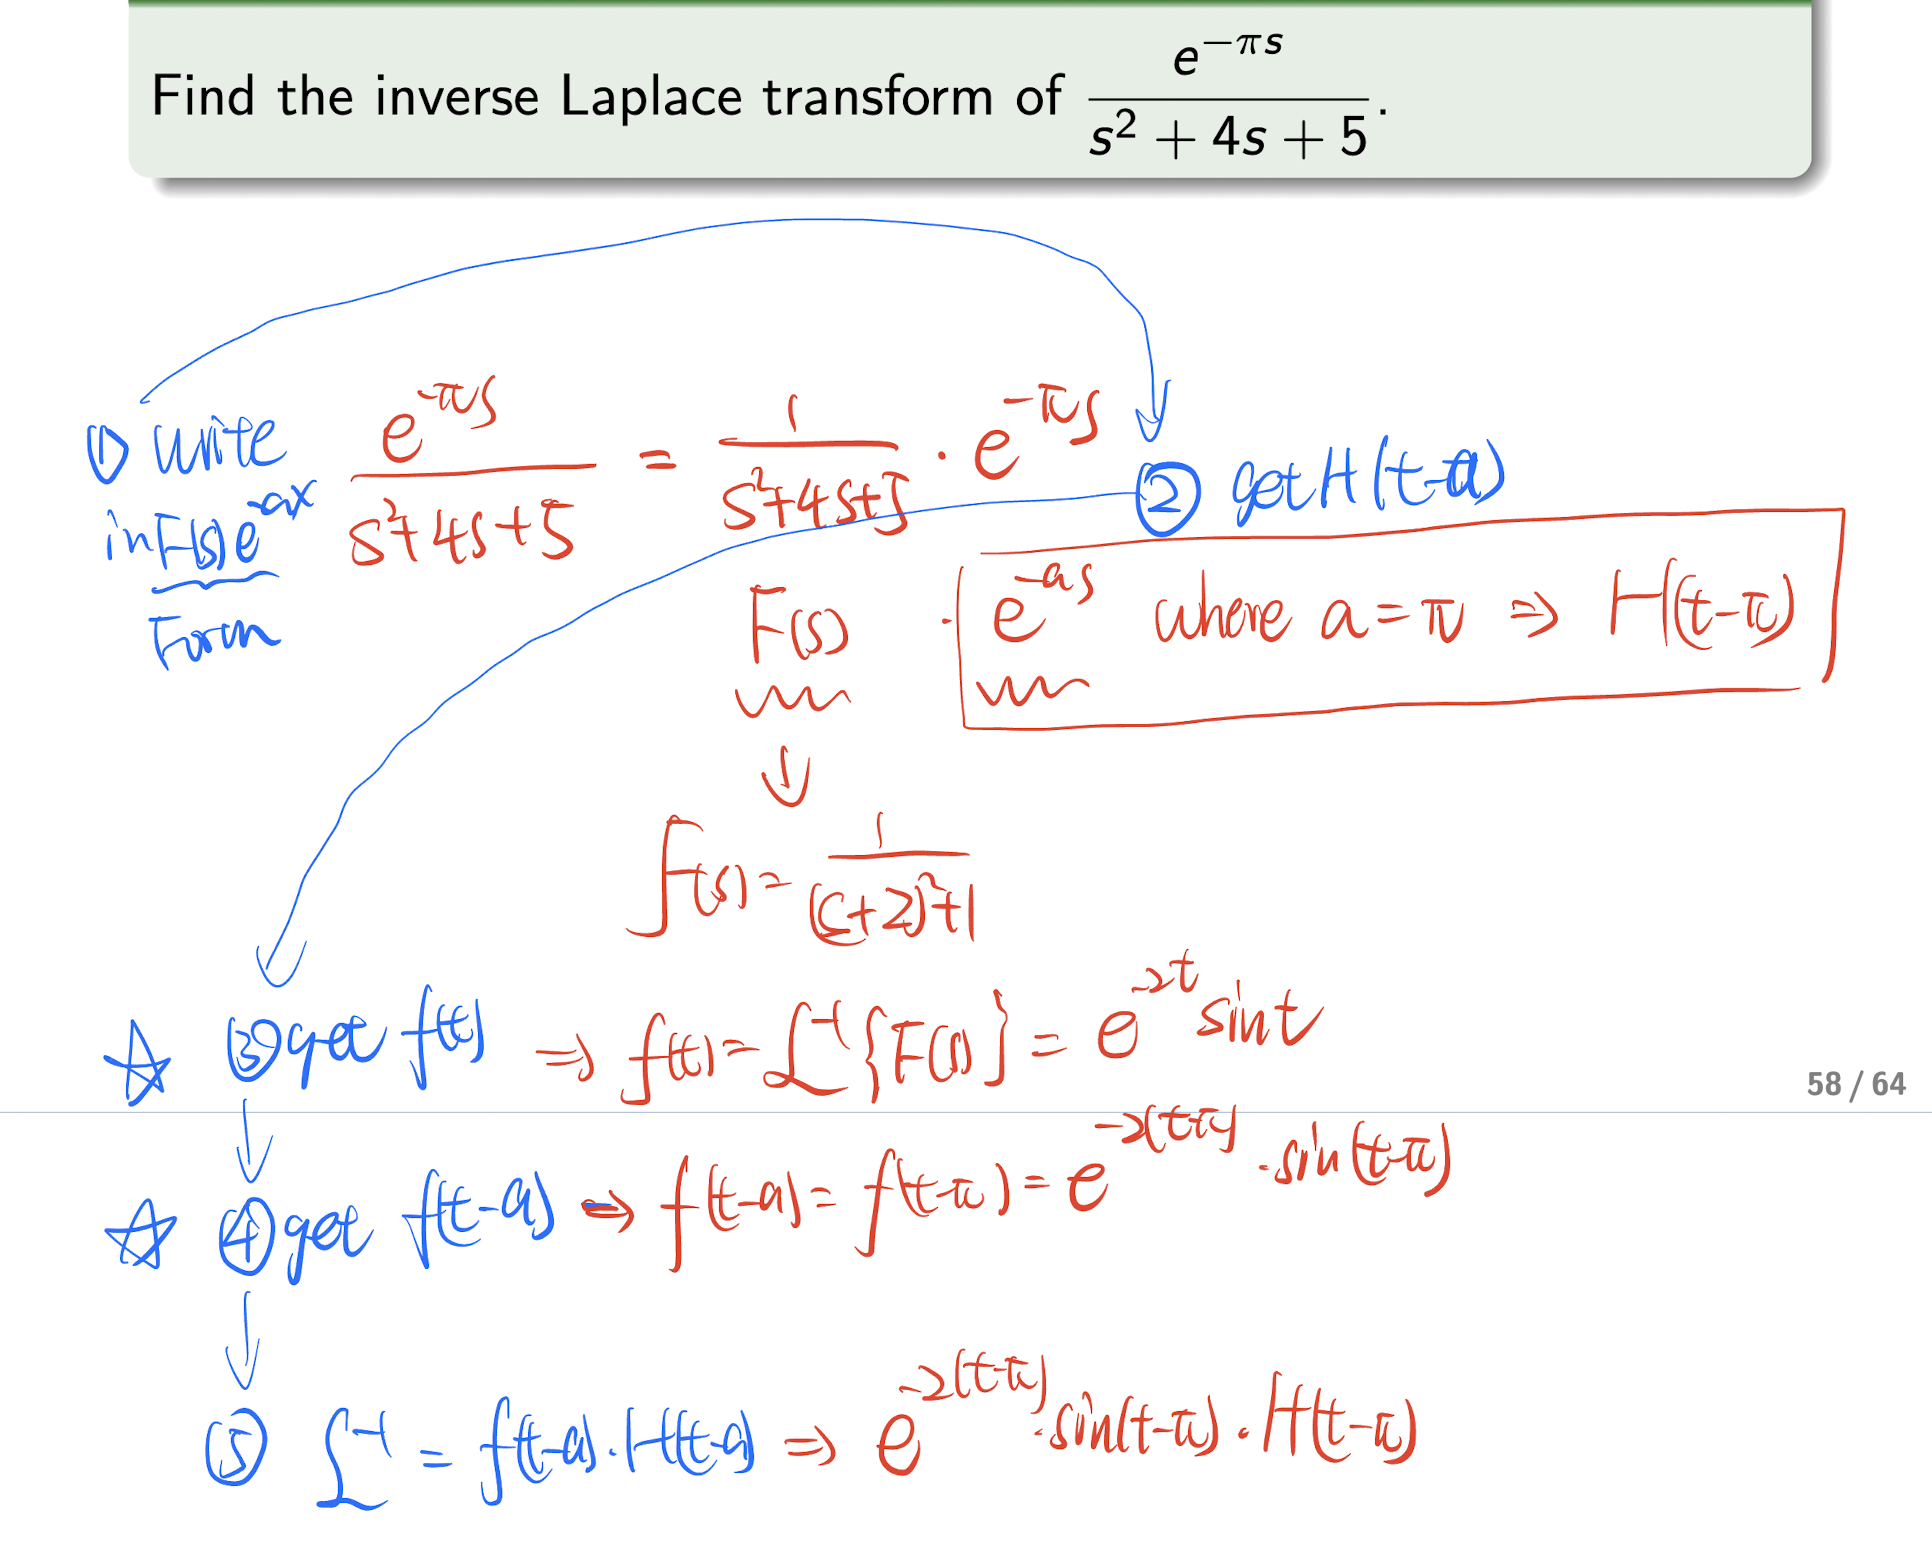 Find the inverse Laplace transform of e^{-πs} / (s² + 4s + 5).
① write in F(s)e^{-ax} Form
e^{-πs} / (s²+4s+5) = 1 / (s²+4s+5) · e^{-πs}
② get H(t-a)
F(s) · e^{-as} where a = π ⇒ H(t-π)
↓
F(s) = 1 / ((s+2)²+1)
☆ ③ get f(t) ⇒ f(t) = L^{-1}{F(s)} = e^{-2t} sint
58 / 64
☆ ④ get f(t-a) ⇒ f(t-a) = f(t-π) = e^{-2(t-π)} · sin(t-π)
⑤ L^{-1} = f(t-a) · H(t-a) ⇒ e^{-2(t-π)} · sin(t-π) · H(t-π)